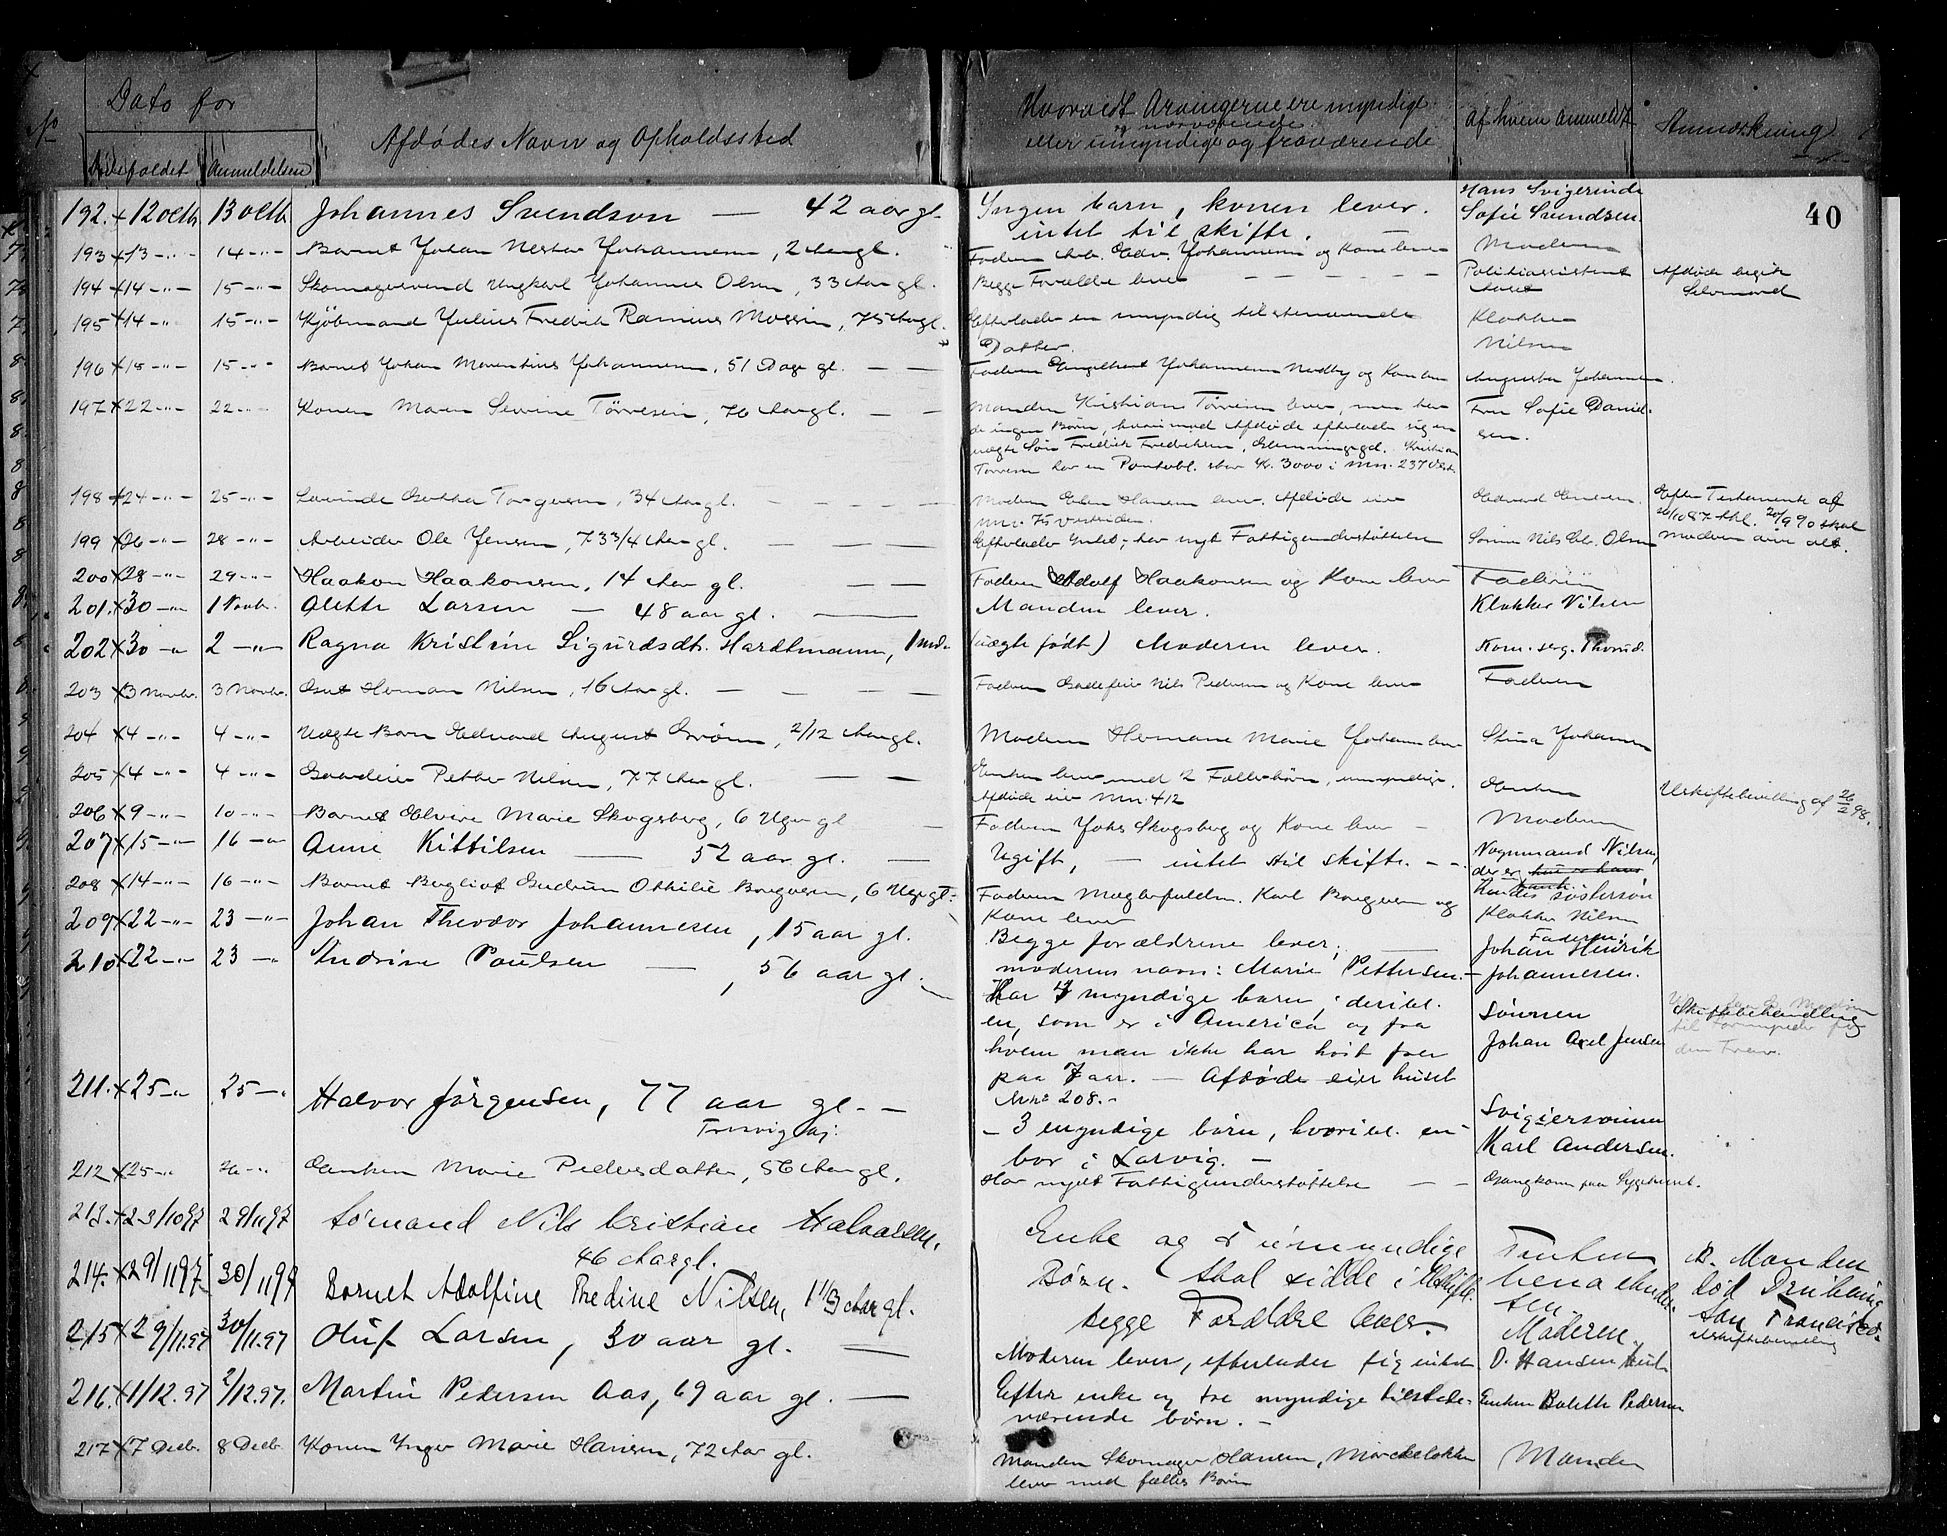 Dato for
No
Dödsfaldet Anmeldelsen
Afdødes Navn og Opholdssted
Hvorvidt Arvingerne ere myndige
og nærværende
eller umyndige og fraværende
Af hvem anmeldt
Anmærkning
40
192. + 12 octb. 13 octb. Johannes Svendsen — 42 aar gl.
Yngen barn, konen lever.
intet til skifte.
Hans Svigerinde
Sofie Svendsen.
193 + 13 -"- 14 -"- Barnet Johan Nestor Johannesen, 2 Aar gl.
Faderen Arb. Edv. Johannesen og Kone lever
Moderen
194 + 14 -"- 15 -"- Skomagersvend Ungkarl Johannes Olsen, 33 Aar gl.
Begge Forældre lever
Politiassistent
Aafdøde begik
Selvmord
195 + 14 -"- 15 -"- Kjøbmand Julius Fredrik Rasmus Mossin, 75 Aar gl.
Efterlader en myndig tilstedeværende
Datter.
Klokker
Nilsen
196 + 15 -"- 15 -"- Barnet Johan Martinius Johannesen, 51 Dage gl.
Faderen Engelbret Johannesen Nedby og Kone lever
Augusta Johannesen.
197 + 22 -"- 22 -"- Konen Maren Sevrine Tørresen, 70 Aar gl.
Manden Kristian Tørresen lever, men hav-
de ingen Børn, hvorimod Afdøde efterlader sig en
uægte Søn Fredrik Fredriksen, Glemmingegd. Kristian
Tørresen har en Pantobl. stor Kr. 3000 i Mn. 237
Fru Sofie Daniel-
sen.
198 + 24 -"- 25 -"- Torgersen, 34 Aar gl.
Moderen Elen Hansen lever. Afdøde eier
Mn. 75 Vestsiden.
Edvard
Efter Testamente af
26/10 87 20/9 90 skal
Moderen arve alt.
199 + 26 -"- 28 -"- Arbeider Ole Jensen, 73 3/4 Aar gl.
Efterlader Intet; har nydt Fattigunderstøttelse
Nils Olsen
200 + 28 -"- 29 -"- Haakon Haakonsen, 14 Aar gl.
Faderen Adolf Haakonsen og Kone lever
Faderen
201. + 30 -"- 1 Novbr. Olette Larsen — 48 aar gl.
Manden lever.
Klokker Nilsen
202 + 30 -"- 2 -"- Ragna Kristine Sigurdsdt. Hardtmann, 1 md.
(uægte født) Moderen lever.
Kom. serg. Thorud.
203 + 3 Novbr. 3 Novbr. Gut Herman Nilsen, 16 Aar gl.
Faderen Gadefeier Nils Pedersen og Kone lever
Faderen
204 + 4 -"- 4 -"- Uægte Barn Edvard August Grønn, 2/12 Aar gl.
Moderen Hermane Marie Johannsen lever
Stina Johansen
205 + 4 -"- 4 -"- Petter Nilsen, 77 Aar gl.
Enken lever med 2 Fællesbørn, umyndige.
Afdøde eier Mn. 412
Enken
Uskiftebevilling af 26/2 98.
206 + 9 -"- 10 -"- Barnet Elvira Marie Skogsberg, 6 Uger gl
Faderen Johs Skogsberg og Kone lever —
Moderen
207 + 15 -"- 16 -"- Anne Kittilsen — 52 aar gl. —
Ugift, — intet til skifte. —
Vognmand Nilsen,
der er
Hendes søstersøn
208 + 14 -"- 16 -"- Barnet Bergliot Gudrun Othilie Borgersen, 6 Uger gl.
Faderen Mæglerfuldm. Karl Borgersen og
Kone lever
Klokker Nilsen
209 + 22 -"- 23 -"- Johan Theodor Johannesen, 15 aar gl.
Begge forældrene lever;
moderens navn: Marie Pettersen. —
Faderen:
Johan Henrik
Johannesen.
210 + 22 -"- 23 -"- Andrine Paulsen — , 56 aar gl.
Har 4 myndige barn, deribl.
en, som er i America og fra
hvem man ikke har hørt fra
paa 7 aar. — Afdøde eier huset
Mn: 208. —
Sønnen
Johan Axel Jensen
Skiftebehandling
211. + 25 -"- 25 -"- Halvor Jørgensen, 77 aar gl. —
— 3 myndige børn, hvoribl. en
bor i Larvig. —
Svigersønnen
Karl Andersen.
212 + 25 -"- Enken Marie Pedersdatter, 56 Aar gl.
Har nydt Fattigunderstøttelse — —
Gangkone paa Sygehuset.
213. + 23/10 97 29/11 97 Sømand Nils Cristian Halvorsen,
46 Aar gl.
Enke og 5 umyndige
Børn. Skal sidde i Uskifte.
Enken
214. + 29/11 97 30/11 97 Barnet Adolfine Thedine Nilsen, 1 1/3 Aar gl.
begge Forældre lever.
Moderen
Manden
død
San Francisco
Uskiftebevilling
215 + 29/11.97 30/11.97 Oluf Larsen, 30 aar gl. —
Moderen lever, efterlader sig intet
O. Hansen
216. + 1/12.97 2/12.97. Martin Pedersen Aas, 69 aar gl. —
Efter enke og tre myndige tilstede-
værende børn. —
Enken Bolette Pedersen
217 + 7 Decbr 8 Decbr Konen Inger Marie Hansen, 72 Aar gl.
Manden Skomager Hansen, Mørckeløkken
lever med fælles Børn
Manden